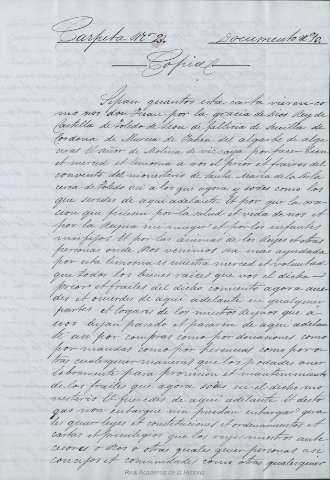 Carpeta Nº 2. Documento nº
Copia
Sepan quantos esta carta vieren co-
mo nos don Juan por la gracia de Dios Rey de
Castilla de Toledo de Leon de Gallicia de Sevilla de
Cordova de Murcia de Jahen del algarbe de alge-
cira et señor de Molina et Vizcaya por facer bien
et merced et limosna a vos el prior et frailes del
convento del monesterio de Santa Maria de la Sisla
cerca de Toledo asi a los que agora y sodes como los
que seredes de aqui adelante et por que la ora-
cion que fisieren por la salud et vida de nos et
por la Reyna mi muger et por los infantes
mis fijos et por las animas de los Reyes et otras
personas onde Nos venimos sea mas ayudada
por esta limosna es nuestra merced et voluntad
que todos los bienes raices que vos el dicho
prior et frailes del dicho convento agora ave-
des et ovierdes de aqui adelante en qualquier
partes et logares de los nuestros regnos que a
vos dejan et pasaren de aqui adelan-
te asi por compras como por donaciones como
por mandas como por herencias como por o-
tra cualquier manera que los podades aver
libremente para provision et mantenimiento
de los frailes que agora sodes en el dicho mo-
nesterio et fueredes de aqui adelante et desto
que non embargue nin puedan embargar qua-
les quier leyes et constituciones et ordenamientos et
cartas et previlegios que los reyes nuestros ante-
cesores o Nos o otras quales quier personas asi
concejos et comunidades como otras qualesquier
Real Academia de la Historia